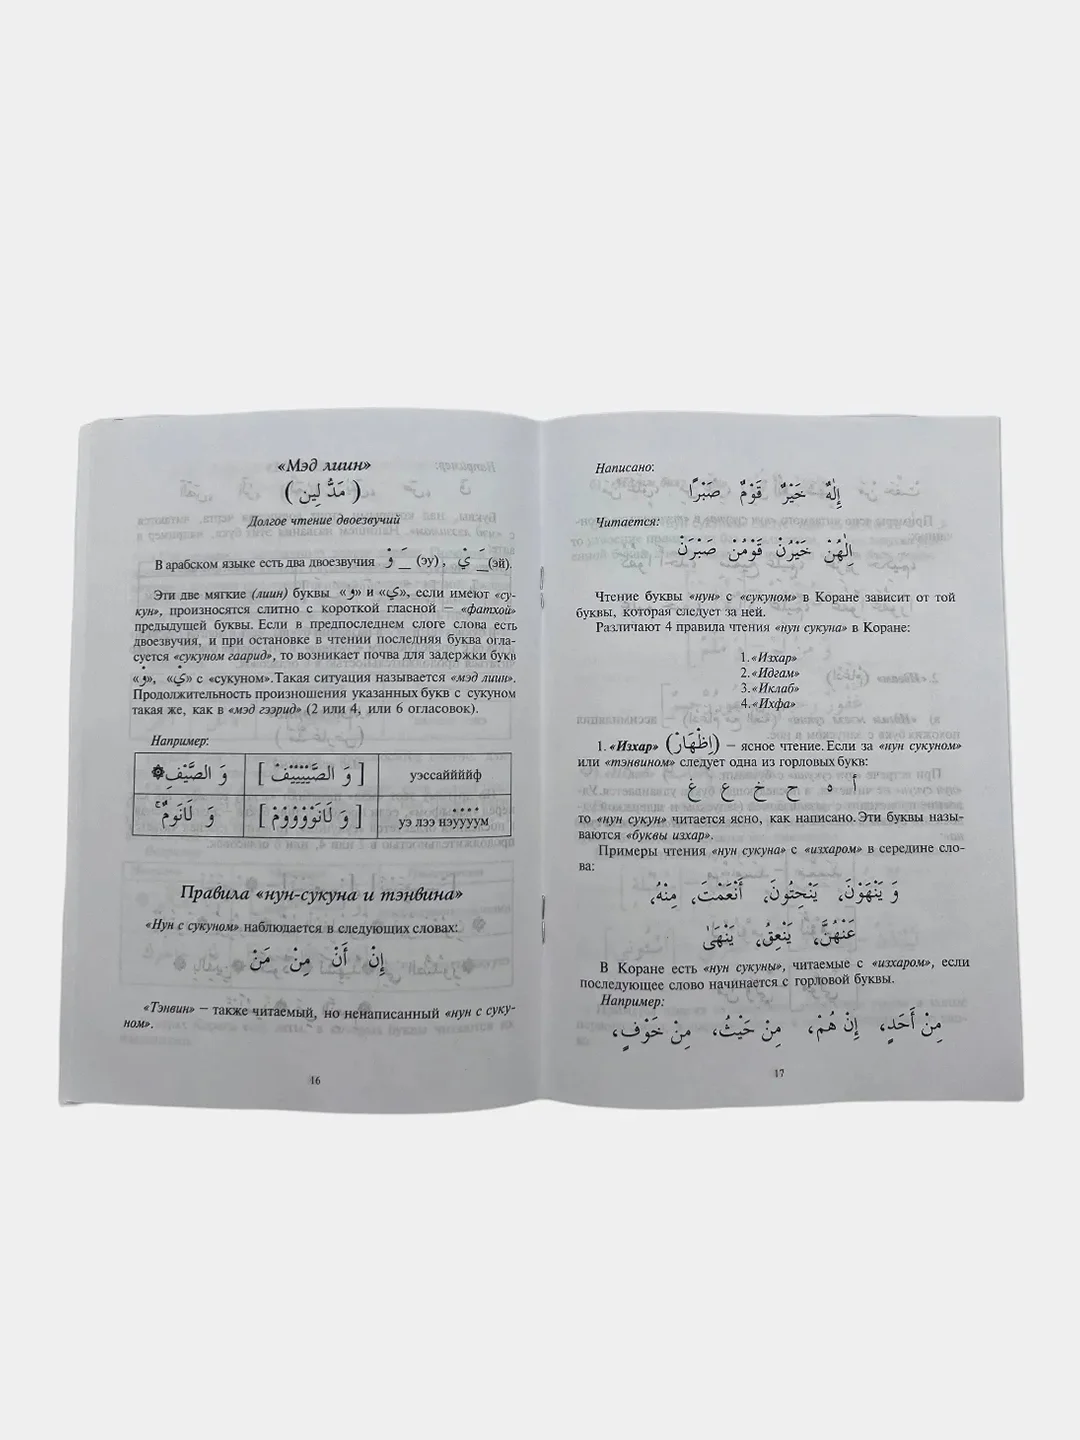 «Мэд лиин»
( مَدُّ لِين )
Долгое чтение двоезвучий
В арабском языке есть два двоезвучия ـَ وْ (эу), ـَ يْ (эй).
Эти две мягкие (лиин) буквы «و» и «ي», если имеют «су-
кун», произносятся слитно с короткой гласной – «фатхой»
предыдущей буквы. Если в предпоследнем слоге слова есть
двоезвучия, и при остановке в чтении последняя буква огла-
суется «сукуном гаарид», то возникает почва для задержки букв
«وْ», «يْ» с «сукуном». Такая ситуация называется «мэд лиин».
Продолжительность произношения указанных букв с сукуном
такая же, как в «мэд гээрид» (2 или 4, или 6 огласовок).
Например:
وَ الصَّيْفِ۞ [ وَ الصَّيْيْيْيْفْ ] уэссаййййф
وَ لَانَوْمٌ ۚ [ وَ لَانَوْوْوْوْمْ ] уэ лээ нэуууум
Правила «нун-сукуна и тэнвина»
«Нун с сукуном» наблюдается в следующих словах:
إِنْ أَنْ مِنْ مَنْ
«Тэнвин» – также читаемый, но ненаписанный «нун с суку-
ном».
16
Написано:
إِلٰهٌ خَيْرٌ قَوْمٌ صَبْرًا
Читается:
اِلٰهُنْ خَيْرُنْ قَوْمُنْ صَبْرَنْ
Чтение буквы «нун» с «сукуном» в Коране зависит от той
буквы, которая следует за ней.
Различают 4 правила чтения «нун сукуна» в Коране:
1. «Изхар»
2. «Идгам»
3. «Иклаб»
4. «Ихфа»
1. «Изхар» (اِظْهَارْ) – ясное чтение. Если за «нун сукуном»
или «тэнвином» следует одна из горловых букв:
أ ه ح خ ع غ
то «нун сукун» читается ясно, как написано. Эти буквы назы-
ваются «буквы изхар».
Примеры чтения «нун сукуна» с «изхаром» в середине сло-
ва:
وَ يَنْهَوْنَ، يَنْحِتُونَ، أَنْعَمْتَ، مِنْهُ،
عَنْهُنَّ، يَنْعِقُ، يَنْهَىٰ
В Коране есть «нун сукуны», читаемые с «изхаром», если
последующее слово начинается с горловой буквы.
Например:
مِنْ أَحَدٍ، إِنْ هُمْ، مِنْ حَيْثُ، مِنْ خَوْفٍ،
17